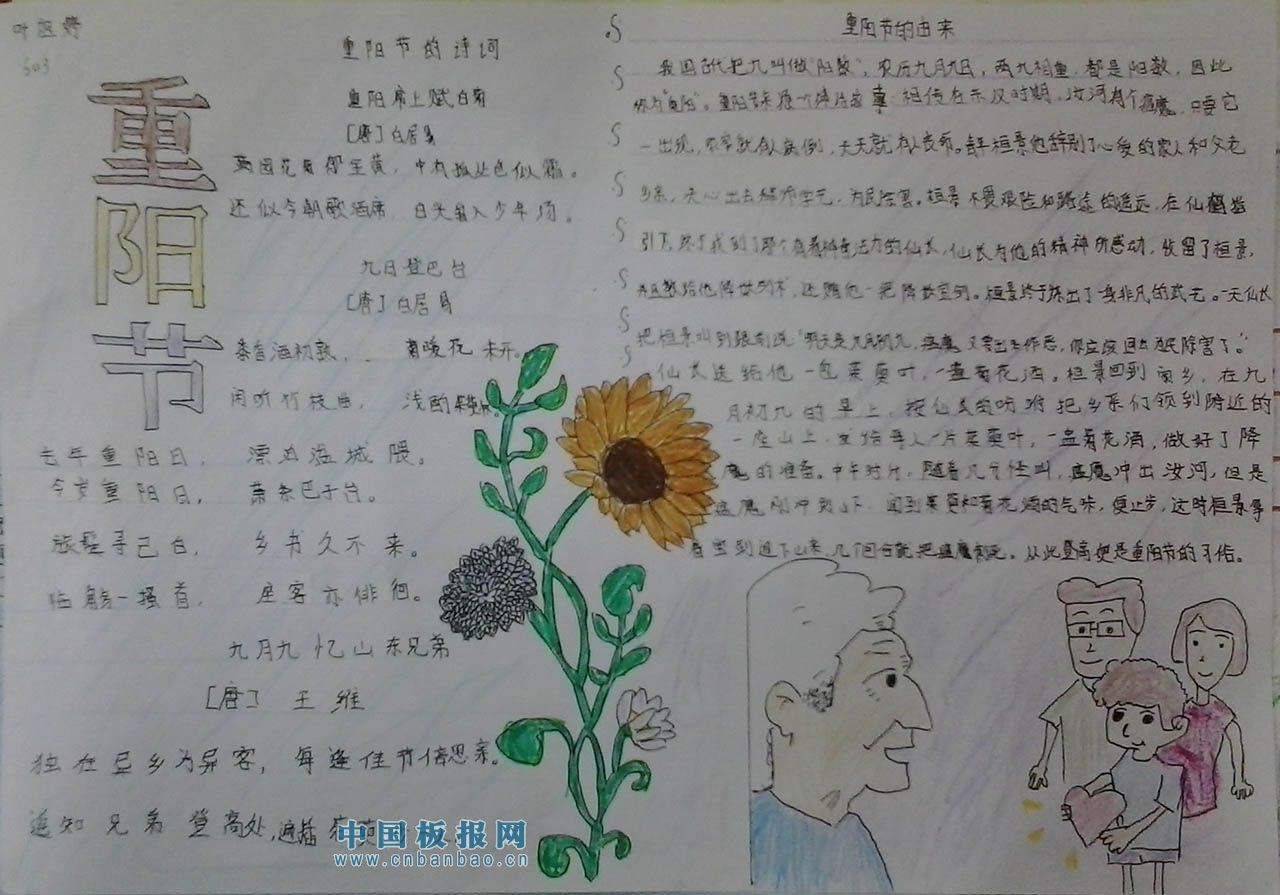 503
重阳节
重阳节的诗词
重阳席上赋白菊
[唐]白居易
满园花菊郁金黄，中有孤丛色似霜。
还似今朝歌酒席，白头翁入少年场。
九日登巴台
[唐]白居易
黍香酒初熟， 菊暖花未开。
闲听竹枝曲， 浅酌
去年重阳日， 漂泊湓城隈。
今岁重阳日， 萧条巴子台。
旅鬓寻已白， 乡书久不来。
临觞一搔首， 座客亦徘徊。
九月九忆山东兄弟
[唐] 王维
独在异乡为异客，每逢佳节倍思亲。
遥知兄弟登高处，遍插茱萸
重阳节的由来
我国古代把九叫做“阳数”，农历九月九日，两九相重，都是阳数，因此
称为“重阳”。重阳节来源 故事：相传在东汉时期，汝河有个瘟魔，只要它
一出现，家家就有人病倒，天天就有人丧命。 桓景他辞别了心爱的家人和父老
乡亲， 出去 学艺，为民除害。桓景不畏艰险和路途的遥远，在仙鹤指
引下，终于找到了那个有着神奇法力的仙长，仙长为他的精神所感动，收留了桓景，
教给他降妖剑术，还赠他一把降妖宝剑。桓景终于练出了一身非凡的武艺。一天仙长
把桓景叫到跟前说“明天是九月初九，瘟魔又要出来作恶，你应该回去为民除害了。”
仙长送给他一包茱萸叶，一盅菊花酒。桓景回到家乡，在九
月初九的早上，按仙长的吩咐把乡亲们领到附近的
一座山上，发给每人一片茱萸叶，一盅菊花酒，做好了降
魔的准备。中午时分，随着几声怪叫，瘟魔冲出汝河，但是
瘟魔刚冲到山下，闻到茱萸和菊花酒的气味，便止步，这时桓景手
着宝剑追下山来，几个回合就把瘟魔刺死。从此登高便是重阳节的习俗。
中国板报网
www.cnbanbao.cn